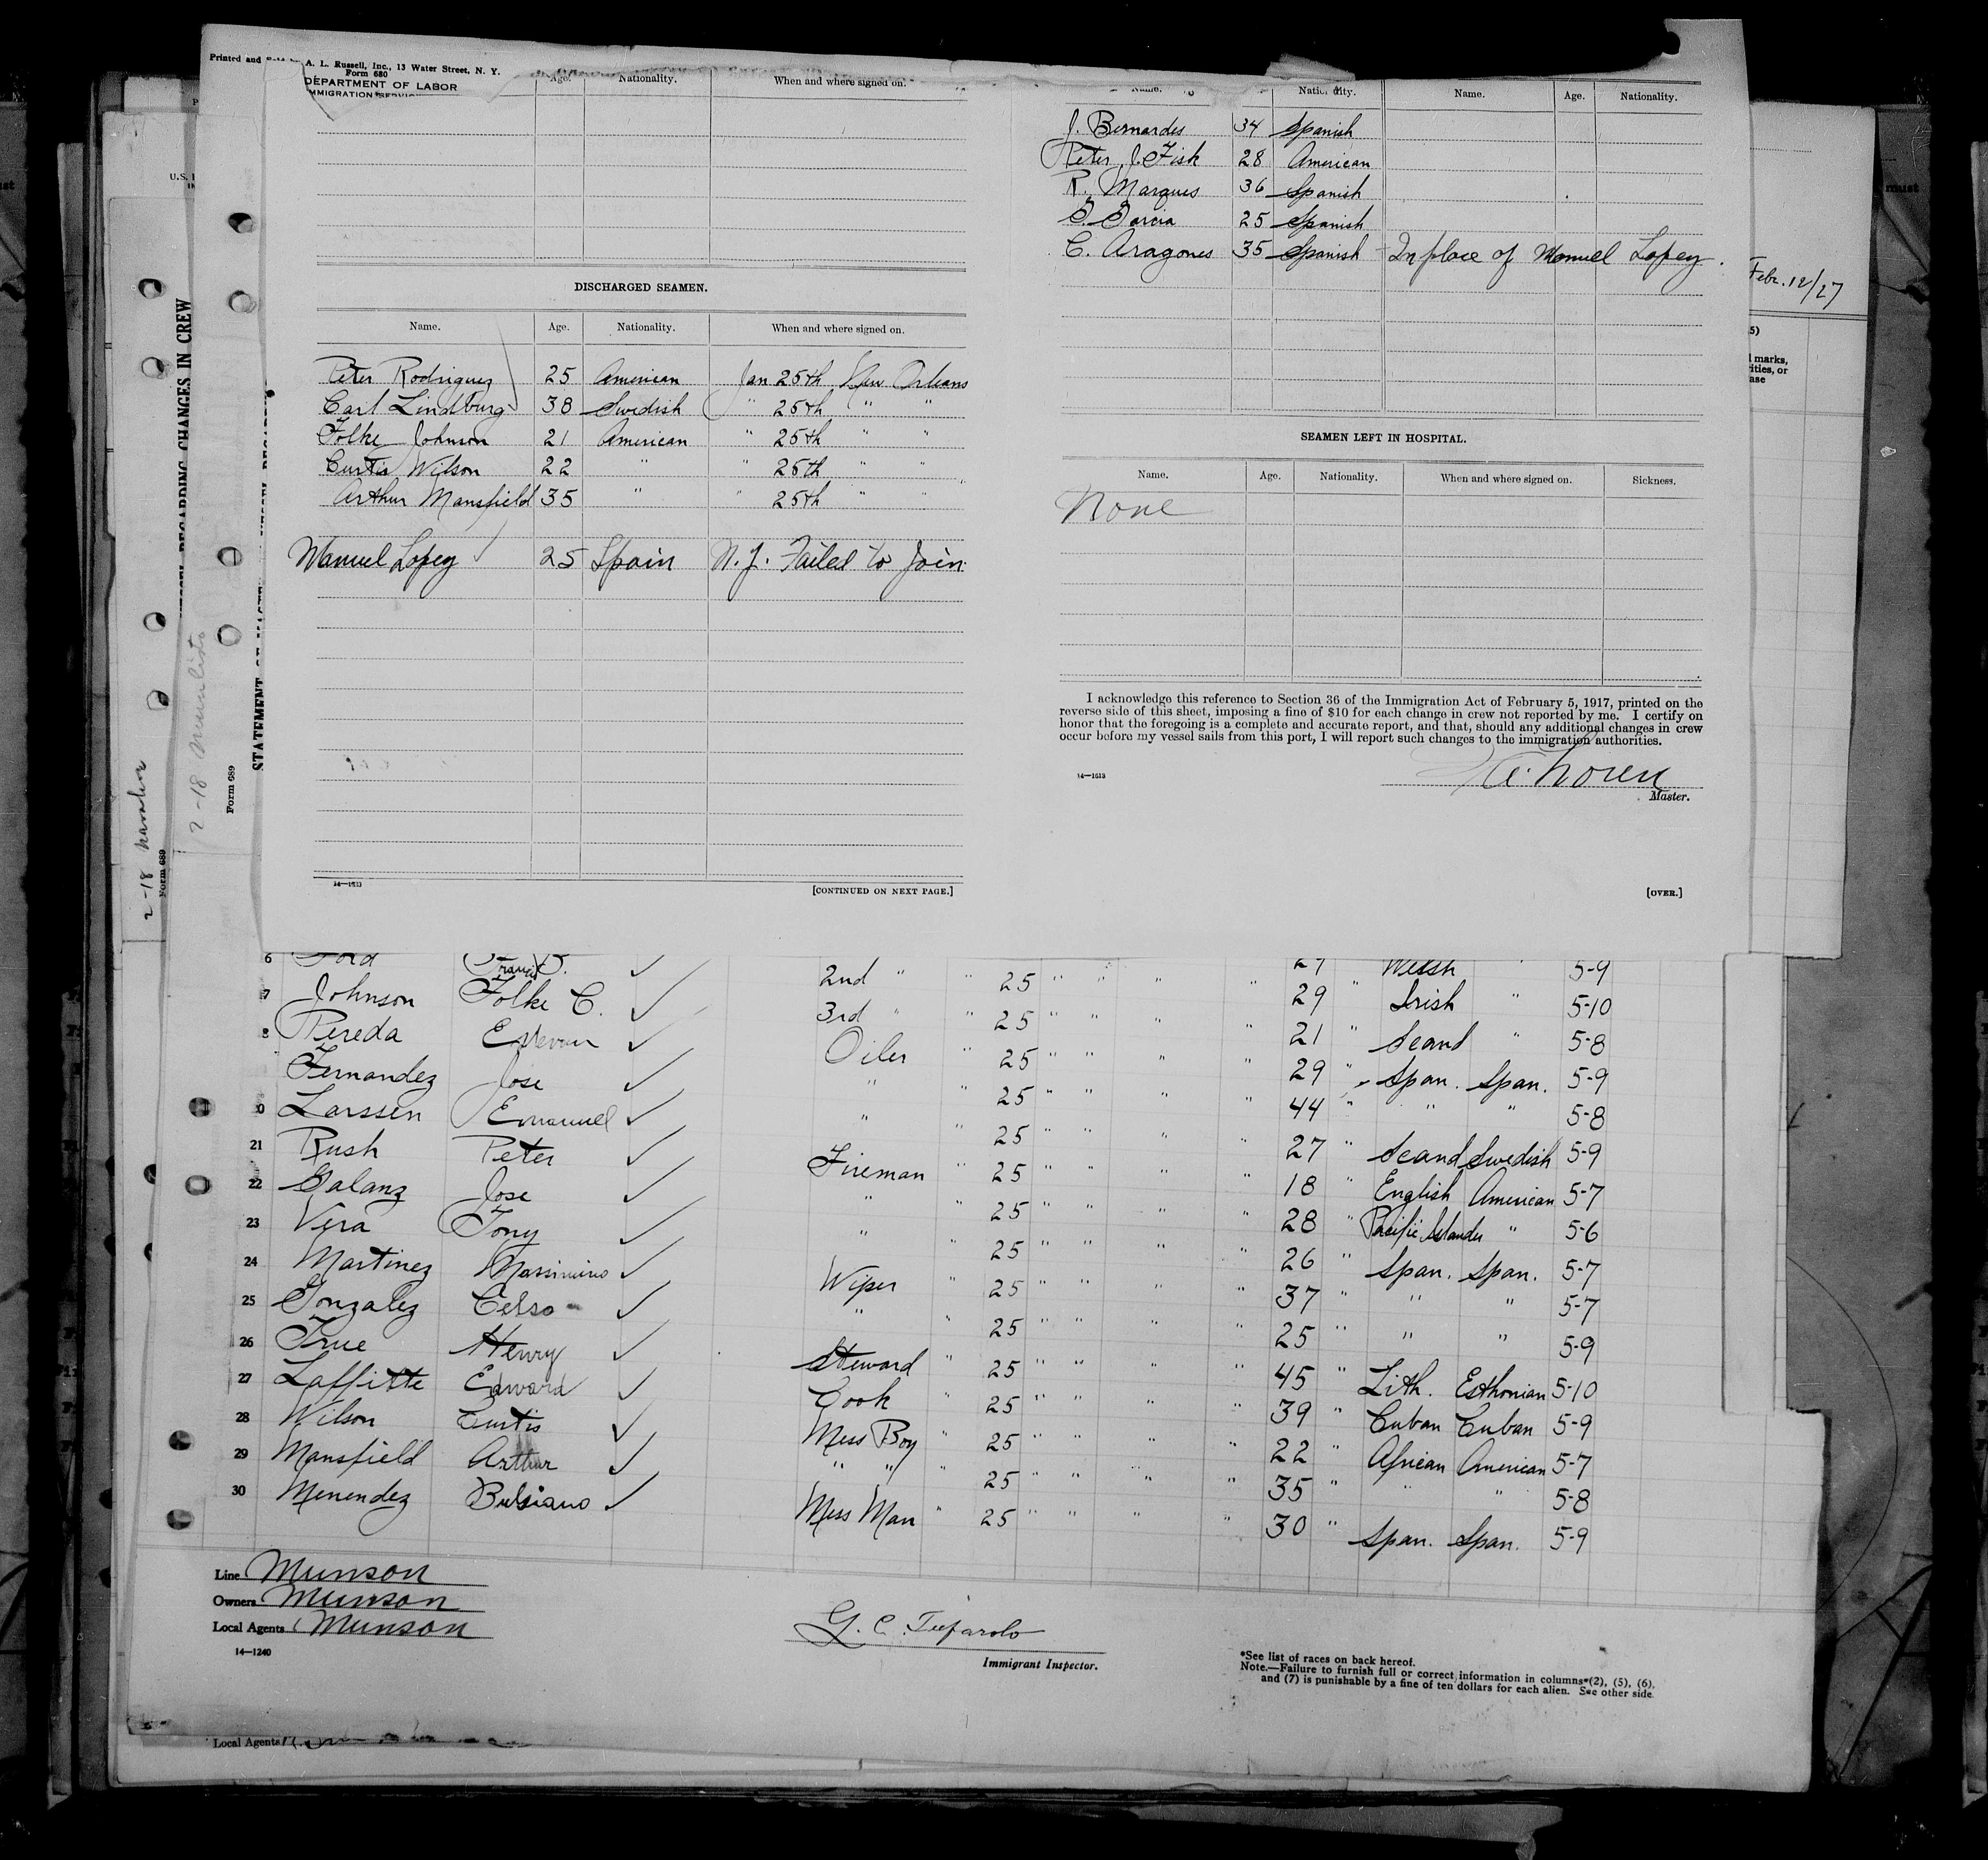 Printed and Sold by A. L. Russell, Inc., 13 Water Street, N. Y.
Form 680
DEPARTMENT OF LABOR
IMMIGRATION SERVICE
Age. Nationality. When and where signed on.
DISCHARGED SEAMEN.
Name. Age. Nationality. When and where signed on.
Peter Rodriguez 25 American Jan 25th New Orleans
Carl Lindburg 38 Swedish " 25th " "
Folke Johnson 21 American " 25th " "
Curtis Wilson 22 " " 25th " "
Arthur Mansfield 35 " " 25th " "
Manuel Lopez 25 Spain N.J. Failed to Join
14—1513
[CONTINUED ON NEXT PAGE.]
Name. Nationality. Name. Age. Nationality.
J. Bernardes 34 Spanish
Peter J. Fisk 28 American
R. Marques 36 Spanish
G. Garcia 25 Spanish
C. Aragones 35 Spanish In place of Manuel Lopez.
SEAMEN LEFT IN HOSPITAL.
Name. Age. Nationality. When and where signed on. Sickness.
None
I acknowledge this reference to Section 36 of the Immigration Act of February 5, 1917, printed on the
reverse side of this sheet, imposing a fine of $10 for each change in crew not reported by me. I certify on
honor that the foregoing is a complete and accurate report, and that, should any additional changes in crew
occur before my vessel sails from this port, I will report such changes to the immigration authorities.
14—1513
Master.
[OVER.]
Febr. 12/27
5)
marks,
ase
must
REGARDING CHANGES IN CREW
STATEMENT OF MASTER
Form 689
2-18
2-18
Form 689
6 Ford Francis 2nd " " 25 " " " " 27 Welsh " 5-9
7 Johnson Folke C. 3rd " " 25 " " " " 29 " Irish " 5-10
8 Pereda Estevan Oiler " 25 " " " " 21 " Scand " 5-8
Fernandez Jose " " 25 " " " " 29 " Span. Span. 5-9
20 Larssen Emanuel " " 25 " " " " 44 " " " 5-8
21 Rush Peter Fireman " 25 " " " 27 " Scand Swedish 5-9
22 Galanz Jose " " 25 " " " " 18 " English American 5-7
23 Vera Tony " " 25 " " " " 28 " Pacific Islander " 5-6
24 Martinez Massimino Wiper " 25 " " " " 26 " Span. Span. 5-7
25 Gonzalez Celso " " 25 " " " " 37 " " " 5-7
26 True Henry Steward " 25 " " " " 25 " " " 5-9
27 Laffitte Edward Cook " 25 " " " " 45 " Lith. Esthonian 5-10
28 Wilson Curtis Mess Boy " 25 " " " " 39 " Cuban Cuban 5-9
29 Mansfield Arthur " " " 25 " " " " 22 " African American 5-7
30 Menendez Mess Man " 25 " " " " 35 " " " 5-8
30 " Span. Span. 5-9
Line Munson
Owners Munson
Local Agents Munson
14—1240
G. C.
Immigrant Inspector.
*See list of races on back hereof.
Note.—Failure to furnish full or correct information in columns*(2), (5), (6),
and (7) is punishable by a fine of ten dollars for each alien. See other side.
Local Agents